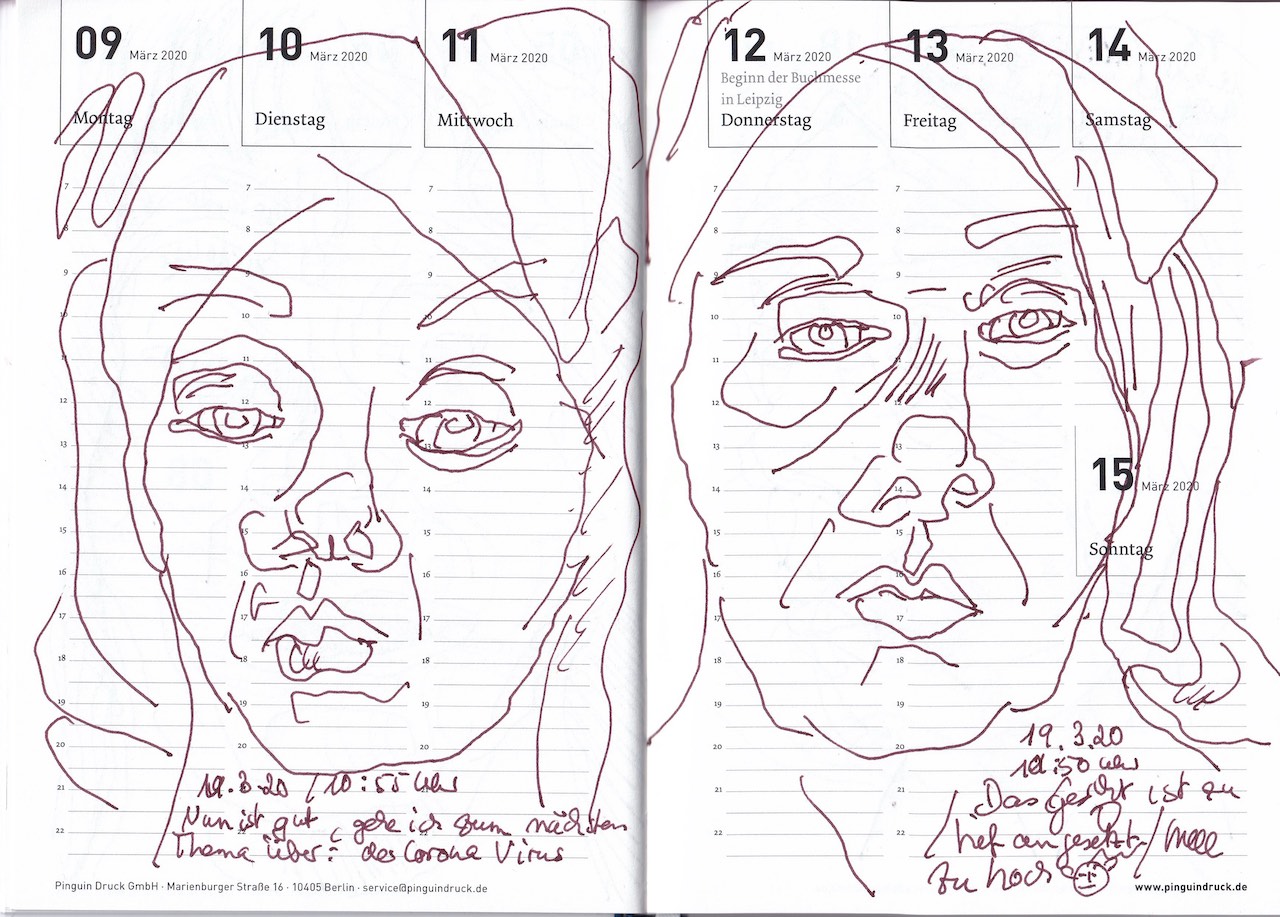 09 März 2020
Montag
10 März 2020
Dienstag
11 März 2020
Mittwoch
7 7 7
8 8
9 9
10 10
11 11 11
12 12 12
13 13
14 14 14
15 15
16 16 16
17 17
18 18 18
19 19
20 20 20
21
22
19.3.20 / 10:55 Uhr
Nun ist gut, gehe ich zum nächsten
Thema über: des Corona Virus
Pinguin Druck GmbH · Marienburger Straße 16 · 10405 Berlin · service@pinguindruck.de
12 März 2020
Beginn der Buchmesse
in Leipzig
Donnerstag
13 März 2020
Freitag
14 März 2020
Samstag
7 7
8 8
9 9
10 10
11 11
12 12
13
14 14
15
16 16
17
18 18
19 19
20 20
21 21
22 22
15 März 2020
Sonntag
19.3.20
10:50 Uhr
Das Gesicht ist zu
tief angesetzt /
zu hoch
www.pinguindruck.de